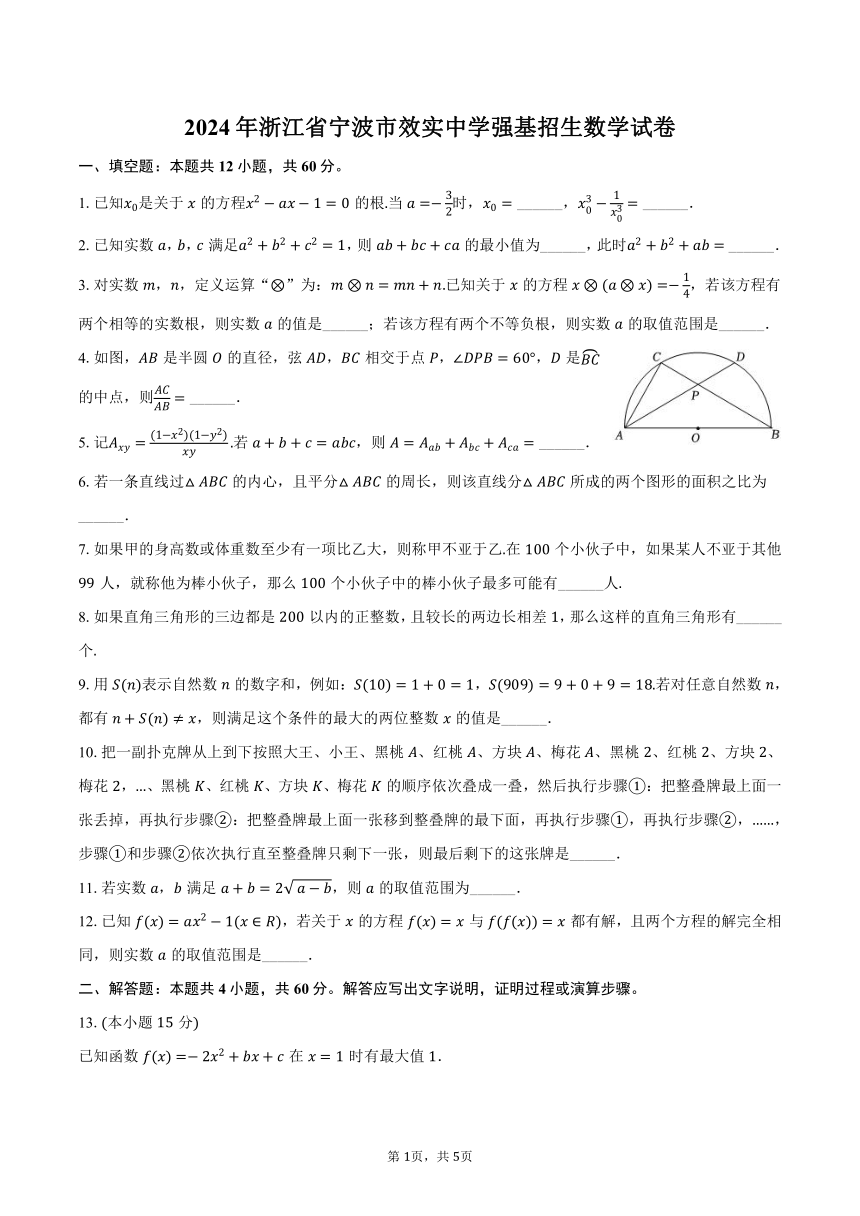 2024 年浙江省宁波市效实中学强基招生数学试卷
一、填空题：本题共 12 小题，共 60 分。
1. 已知x₀是关于 x 的方程x² − ax − 1 = 0 的根.当 a =− 3/2时，x₀ = ______，x₀³ − 1/x₀³ = ______．
2. 已知实数 a，b，c 满足a² + b² + c² = 1，则 ab + bc + ca 的最小值为______，此时a² + b² + ab = ______．
3. 对实数 m，n，定义运算“⊗”为：m ⊗ n = mn + n.已知关于 x 的方程 x ⊗ (a ⊗ x) =− 1/4，若该方程有
两个相等的实数根，则实数 a 的值是______；若该方程有两个不等负根，则实数 a 的取值范围是______．
4. 如图，AB 是半圆 O 的直径，弦 AD，BC 相交于点 P，∠DPB = 60°，D 是BC⌢
的中点，则AC/AB = ______．
C D
P
A O B
5. 记Axy = (1−x²)(1−y²)/xy .若 a + b + c = abc，则 A = Aab + Abc + Aca = ______．
6. 若一条直线过△ ABC 的内心，且平分△ ABC 的周长，则该直线分△ ABC 所成的两个图形的面积之比为
______．
7. 如果甲的身高数或体重数至少有一项比乙大，则称甲不亚于乙.在 100 个小伙子中，如果某人不亚于其他
99 人，就称他为棒小伙子，那么 100 个小伙子中的棒小伙子最多可能有______人.
8. 如果直角三角形的三边都是 200 以内的正整数，且较长的两边长相差 1，那么这样的直角三角形有______
个.
9. 用 S(n)表示自然数 n 的数字和，例如：S(10) = 1 + 0 = 1，S(909) = 9 + 0 + 9 = 18.若对任意自然数 n，
都有 n + S(n) ≠ x，则满足这个条件的最大的两位整数 x 的值是______．
10. 把一副扑克牌从上到下按照大王、小王、黑桃 A、红桃 A、方块 A、梅花 A、黑桃 2、红桃 2、方块 2、
梅花 2，…、黑桃 K、红桃 K、方块 K、梅花 K 的顺序依次叠成一叠，然后执行步骤①：把整叠牌最上面一
张丢掉，再执行步骤②：把整叠牌最上面一张移到整叠牌的最下面，再执行步骤①，再执行步骤②，……，
步骤①和步骤②依次执行直至整叠牌只剩下一张，则最后剩下的这张牌是______．
11. 若实数 a，b 满足 a + b = 2√(a − b)，则 a 的取值范围为______．
12. 已知 f(x) = ax² − 1(x ∈ R)，若关于 x 的方程 f(x) = x 与 f(f(x)) = x 都有解，且两个方程的解完全相
同，则实数 a 的取值范围是______．
二、解答题：本题共 4 小题，共 60 分。解答应写出文字说明，证明过程或演算步骤。
13. (本小题 15 分)
已知函数 f(x) =− 2x² + bx + c 在 x = 1 时有最大值 1．
第 1页，共 5页